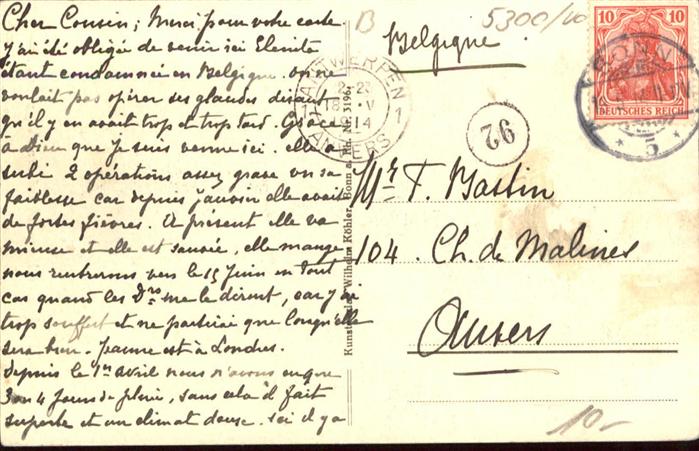 Cher Cousin; Merci pour votre carte.
J'ai été obligée de venir ici Elenita
étant condamnée en Belgique. on ne
voulait pas opérer ses glandes disant
qu'il y en avait trop et trop tard. Grâce
à Dieu que je suis venue ici. elle a
subi 2 opérations assez grave vu sa
faiblesse car depuis janvier elle avait
de fortes fièvres. A présent elle va
mieux et elle est sauvée, elle mange
nous rentrerons vers le 15 Juin en tout
cas quand les Drs me le diront, car j'ai
trop souffert et ne partirai que lorsqu'elle
sera bien. Jeanne est à Londres.
Depuis le 1er avril nous n'avons eu que
3 ou 4 jours de pluie, sans cela il fait
superbe et un climat doux. ici il y a
B
5300/
Belgique
ANTWERPEN
1
18 V
14
ANVERS
92
10 10
DEUTSCHES REICH
BONN
5
Kunstverlag Wilhelm Köhler, Bonn a. Rh. Nr. 3196.
Mr F. Bastin
104. Ch. de Malines
Anvers
10-